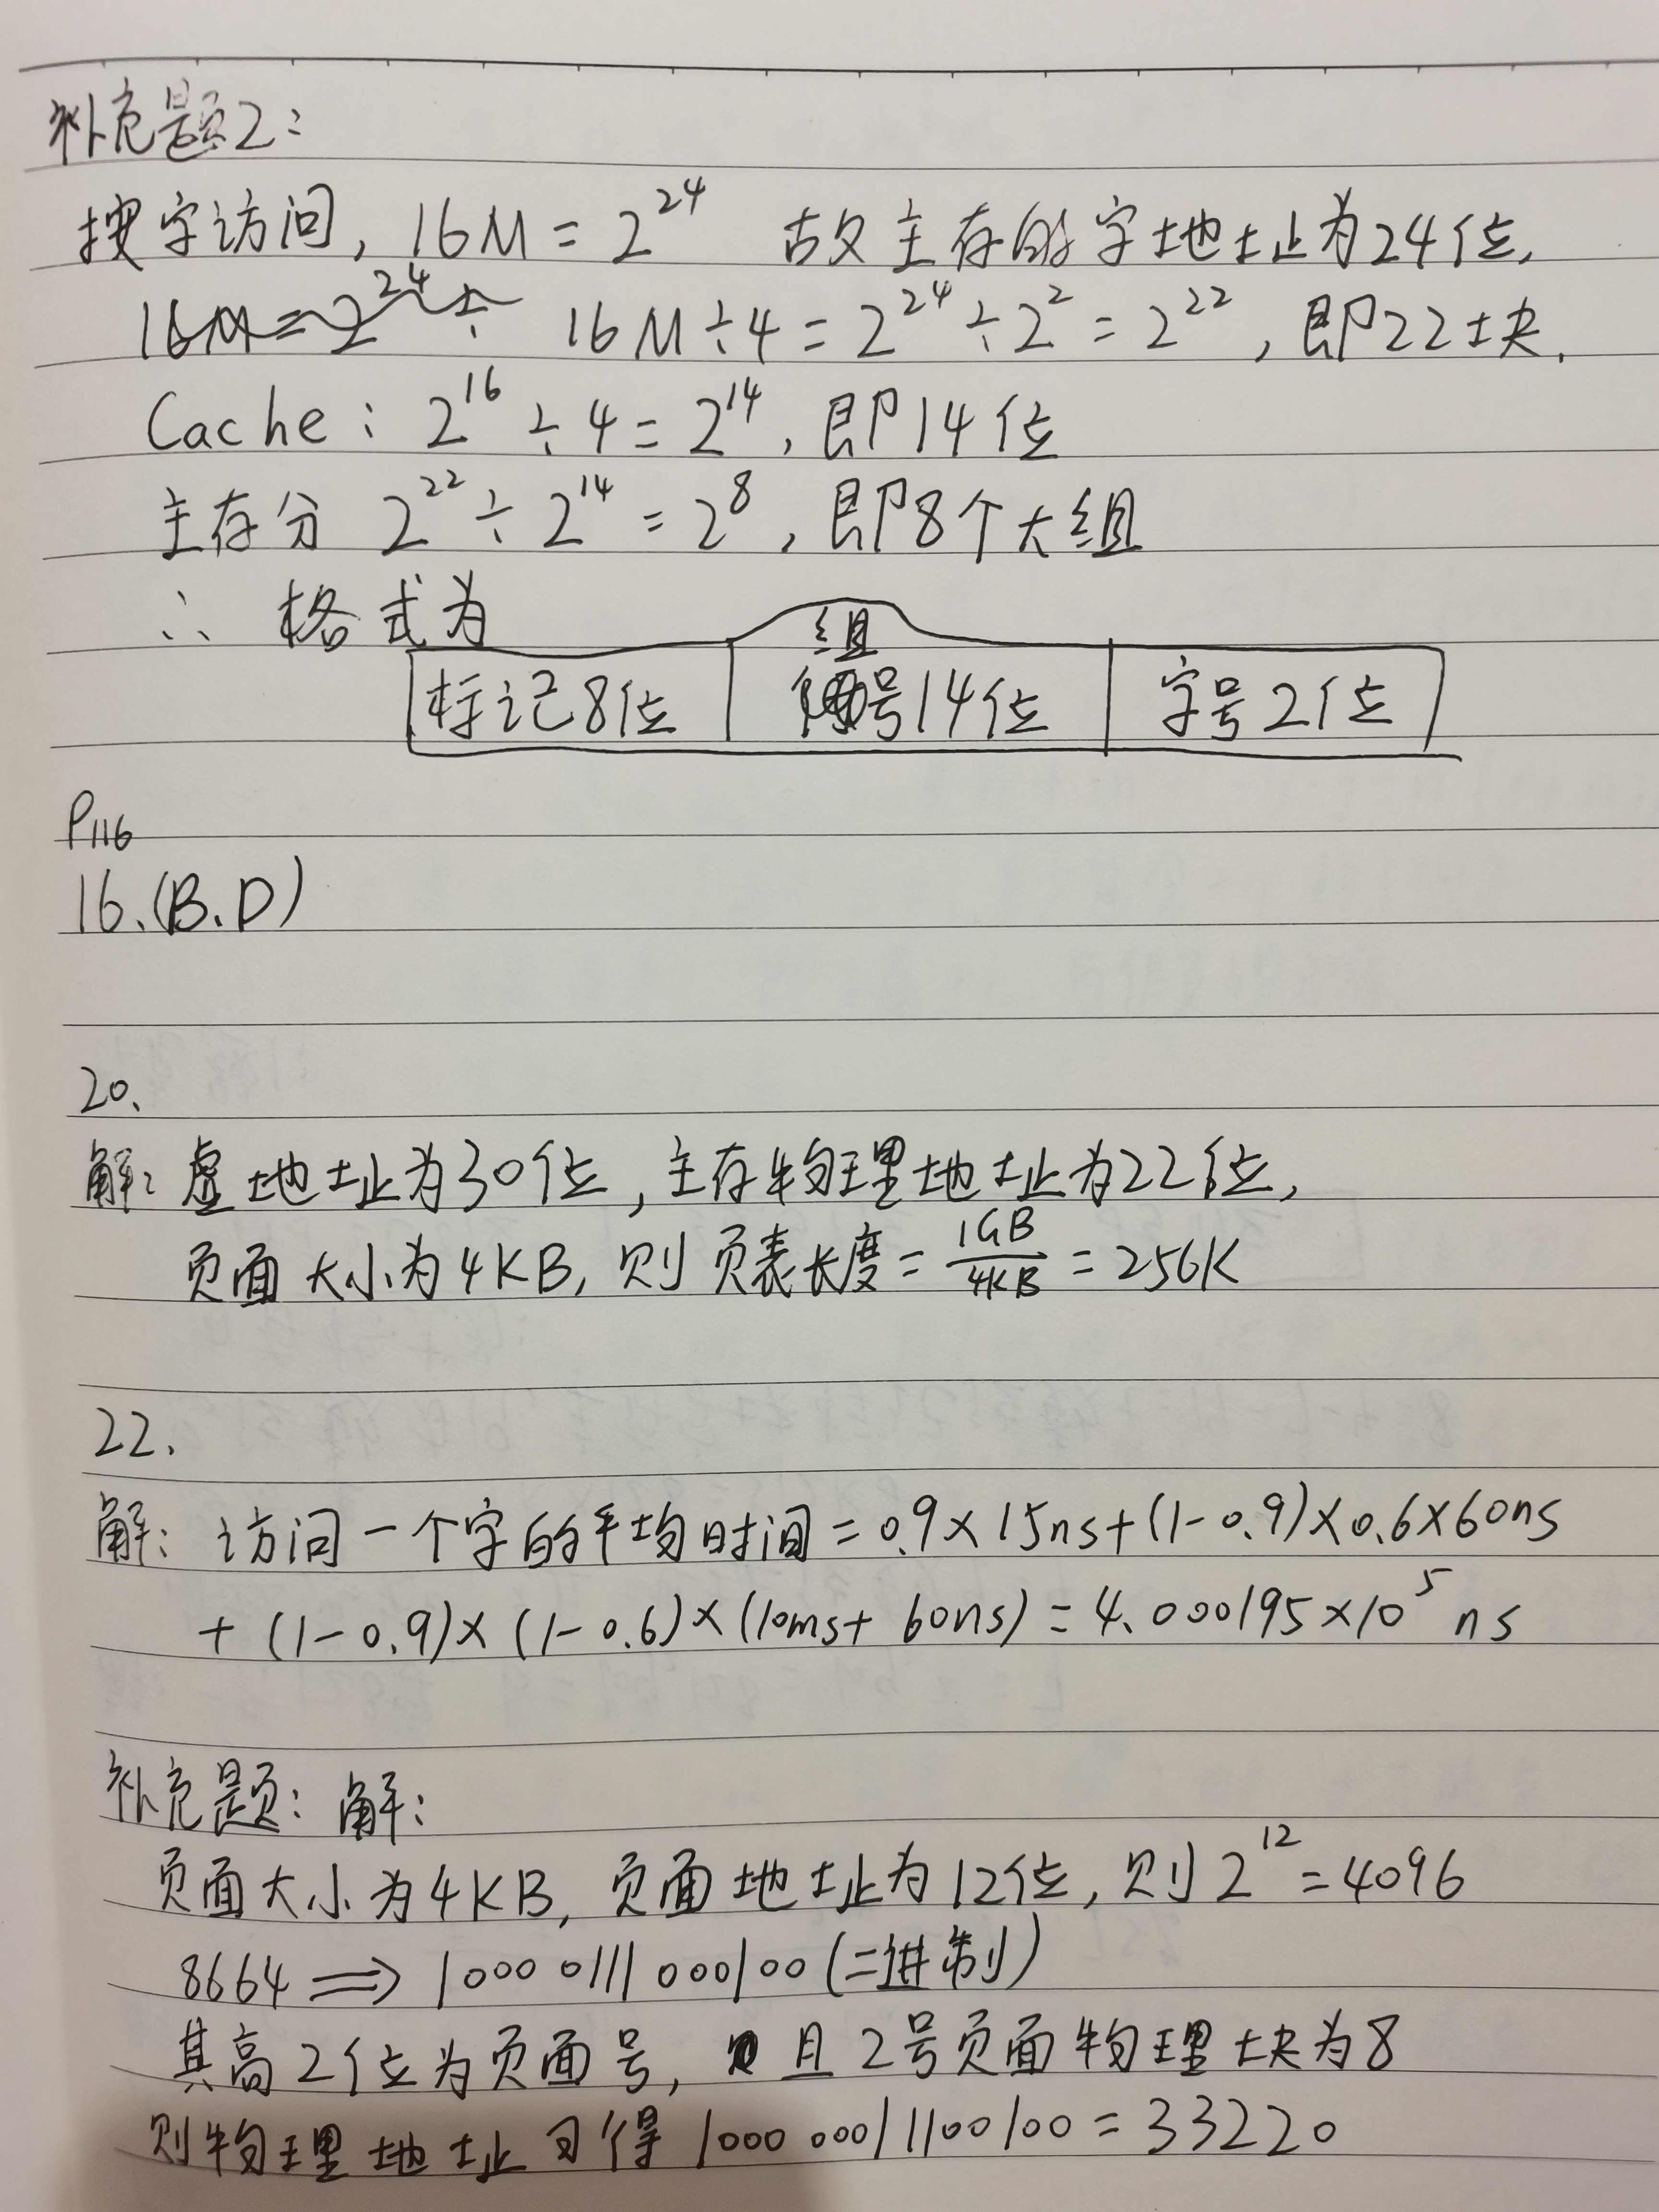 补充题2:
按字访问, 16M = 2^24 故主存的字地址为24位,
16M = 2^24 ÷ 16M÷4 = 2^24 ÷ 2^2 = 2^22, 即22块.
Cache: 2^16 ÷ 4 = 2^14, 即14位
主存分 2^22 ÷ 2^14 = 2^8, 即8个大组
∴ 格式为
标记8位 组号14位 字号2位
P116
16.(B.D)
20.
解: 虚地址为30位, 主存物理地址为22位,
页面大小为4KB, 则页表长度 = 1GB/4KB = 256K
22.
解: 访问一个字的平均时间 = 0.9×15ns+(1-0.9)×0.6×60ns
+ (1-0.9)×(1-0.6)×(10ms+60ns) = 4.000195×10^5 ns
补充题: 解:
页面大小为4KB, 页面地址为12位, 则2^12 = 4096
8664 ⇒ 1000 0111 000100 (二进制)
其高2位为页面号, 且2号页面物理块为8
则物理地址可得 1000 0001 1100100 = 33220